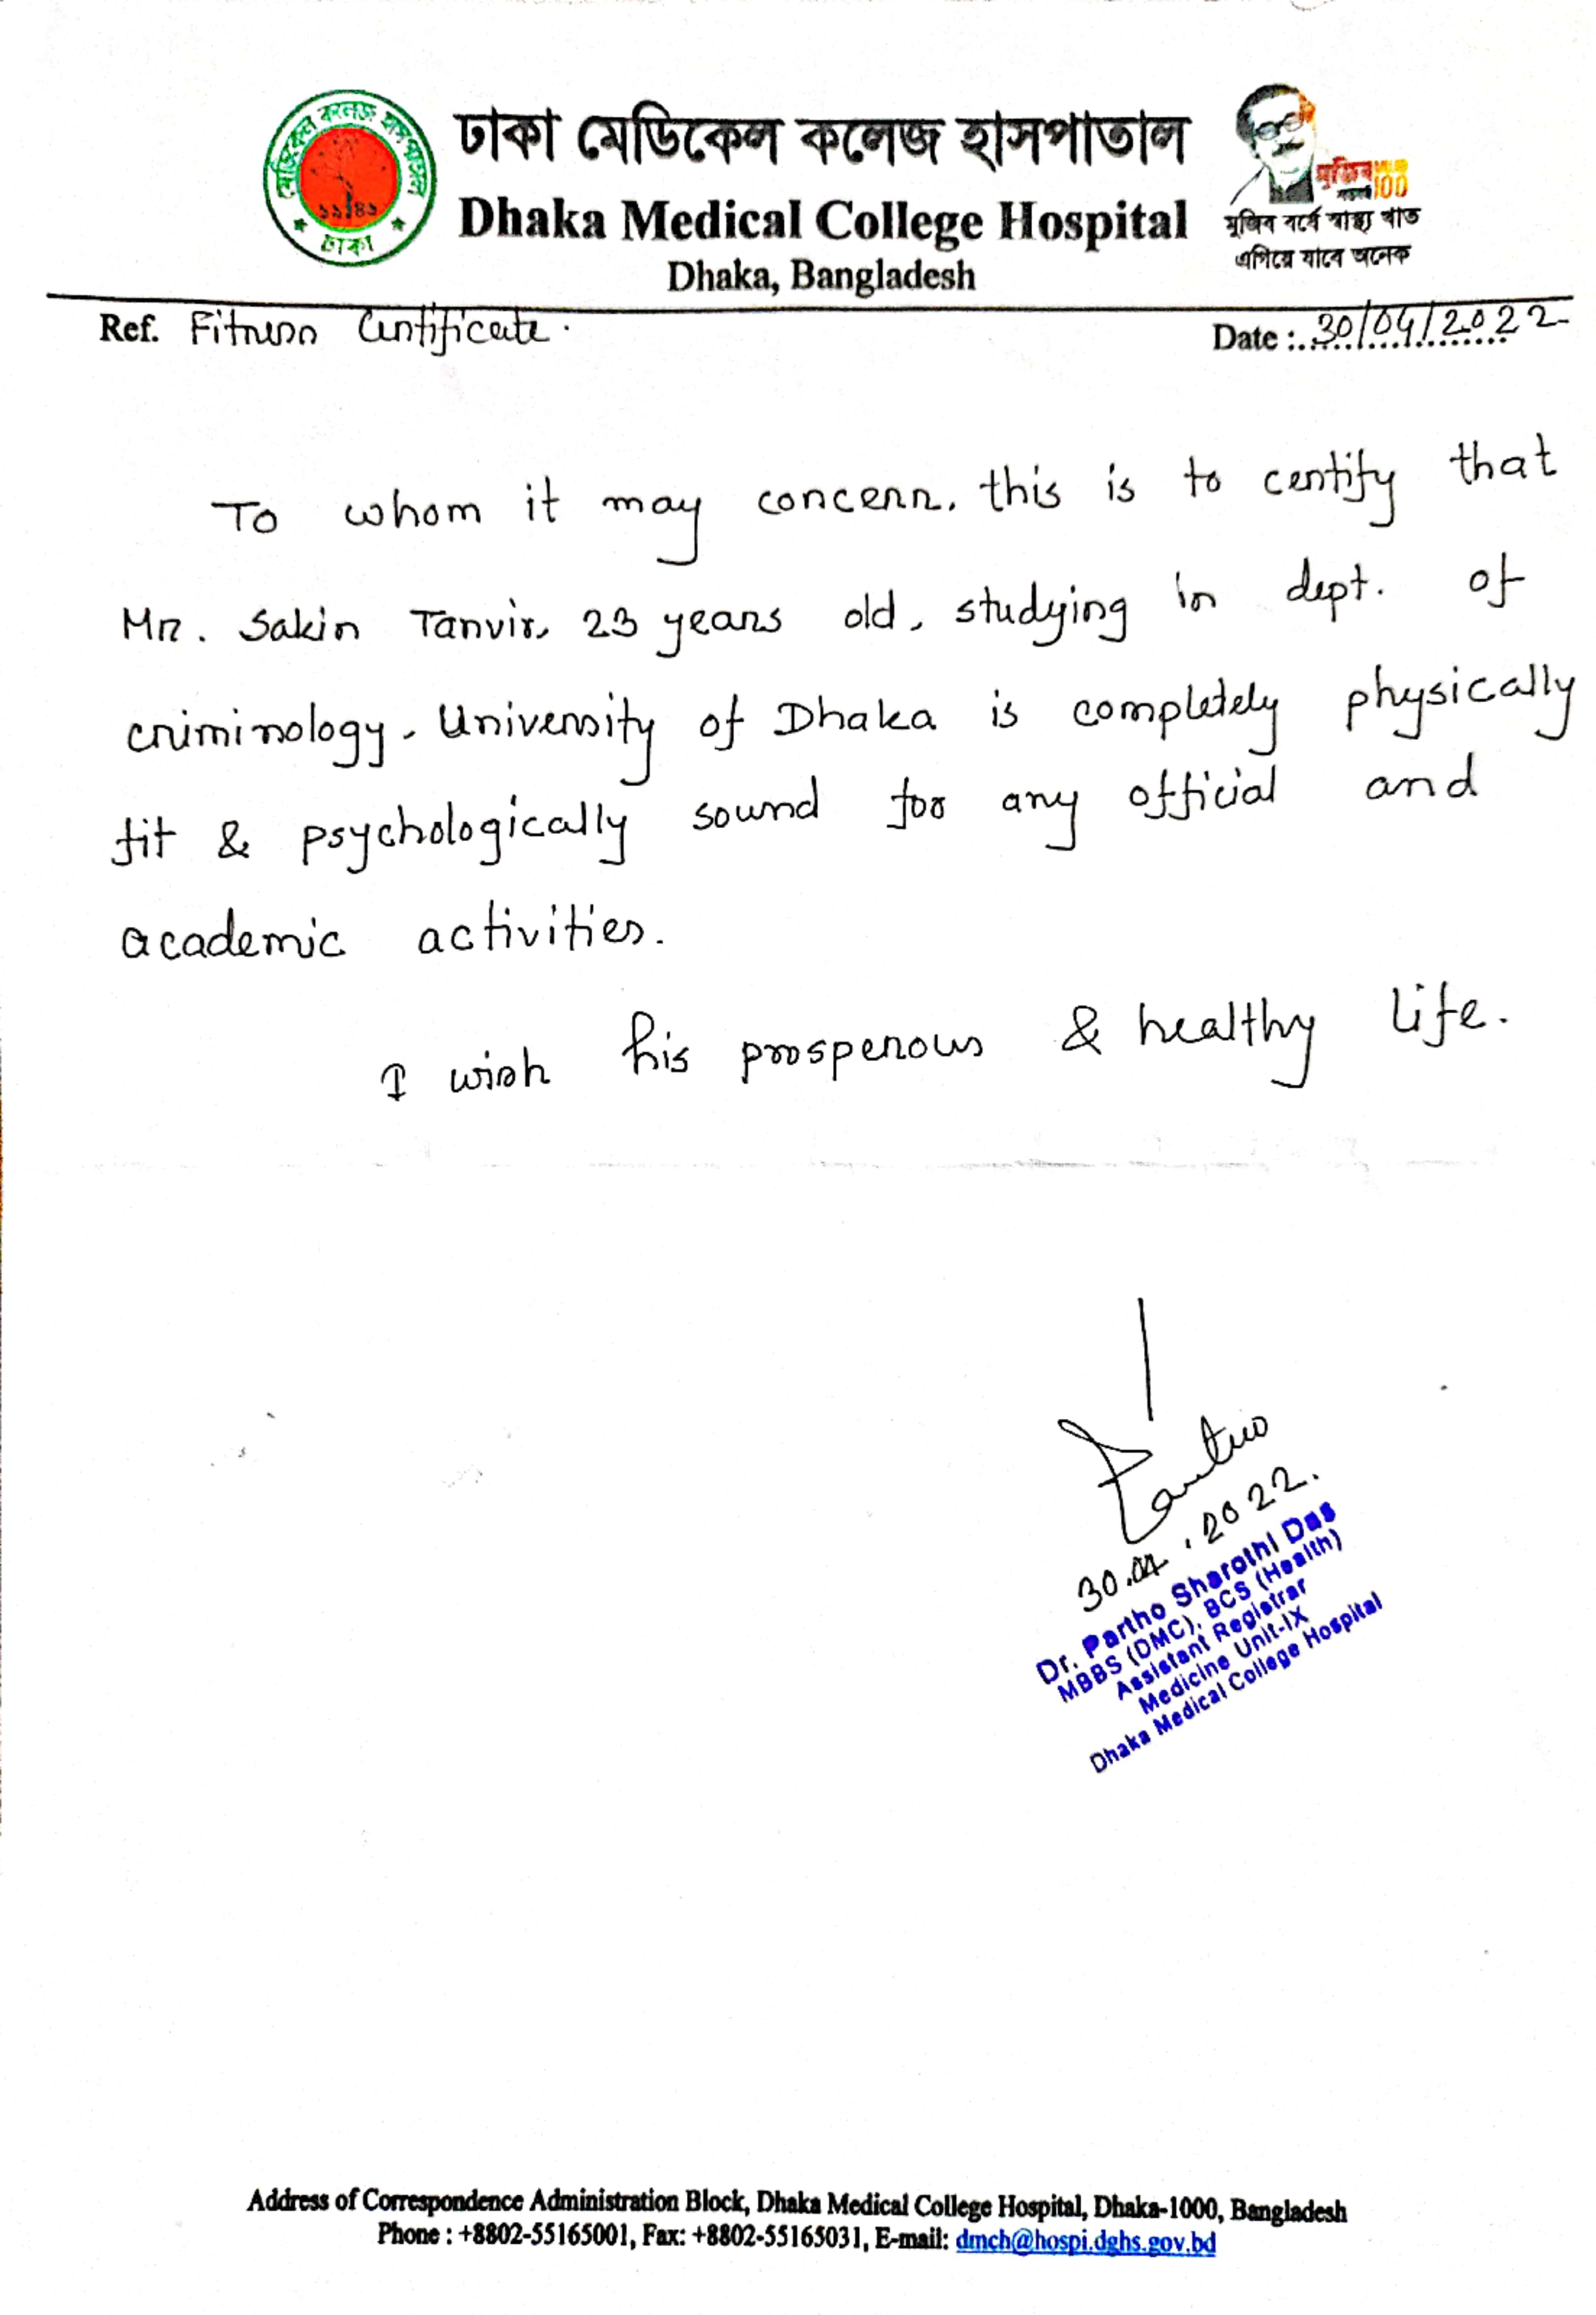 ঢাকা মেডিকেল কলেজ হাসপাতাল
Dhaka Medical College Hospital
Dhaka, Bangladesh
মেডিকেল কলেজ হাসপাতাল
১৯৪৬
ঢাকা
মুজিব
100
মুজিব বর্ষে স্বাস্থ্য খাত
এগিয়ে যাবে অনেক
Ref. Fitness Certificate.
Date :. 30/04/2022
To whom it may concern, this is to certify that
Mr. Sakin Tanvir, 23 years old, studying in dept. of
criminology, University of Dhaka is completely physically
fit & psychologically sound for any official and
academic activities.
I wish his prosperous & healthy life.
Partho
30.04.2022.
Dr. Partho Sharothi Das
MBBS (DMC), BCS (Health)
Assistant Registrar
Medicine Unit-IX
Dhaka Medical College Hospital
Address of Correspondence Administration Block, Dhaka Medical College Hospital, Dhaka-1000, Bangladesh
Phone : +8802-55165001, Fax: +8802-55165031, E-mail: dmch@hospi.dghs.gov.bd